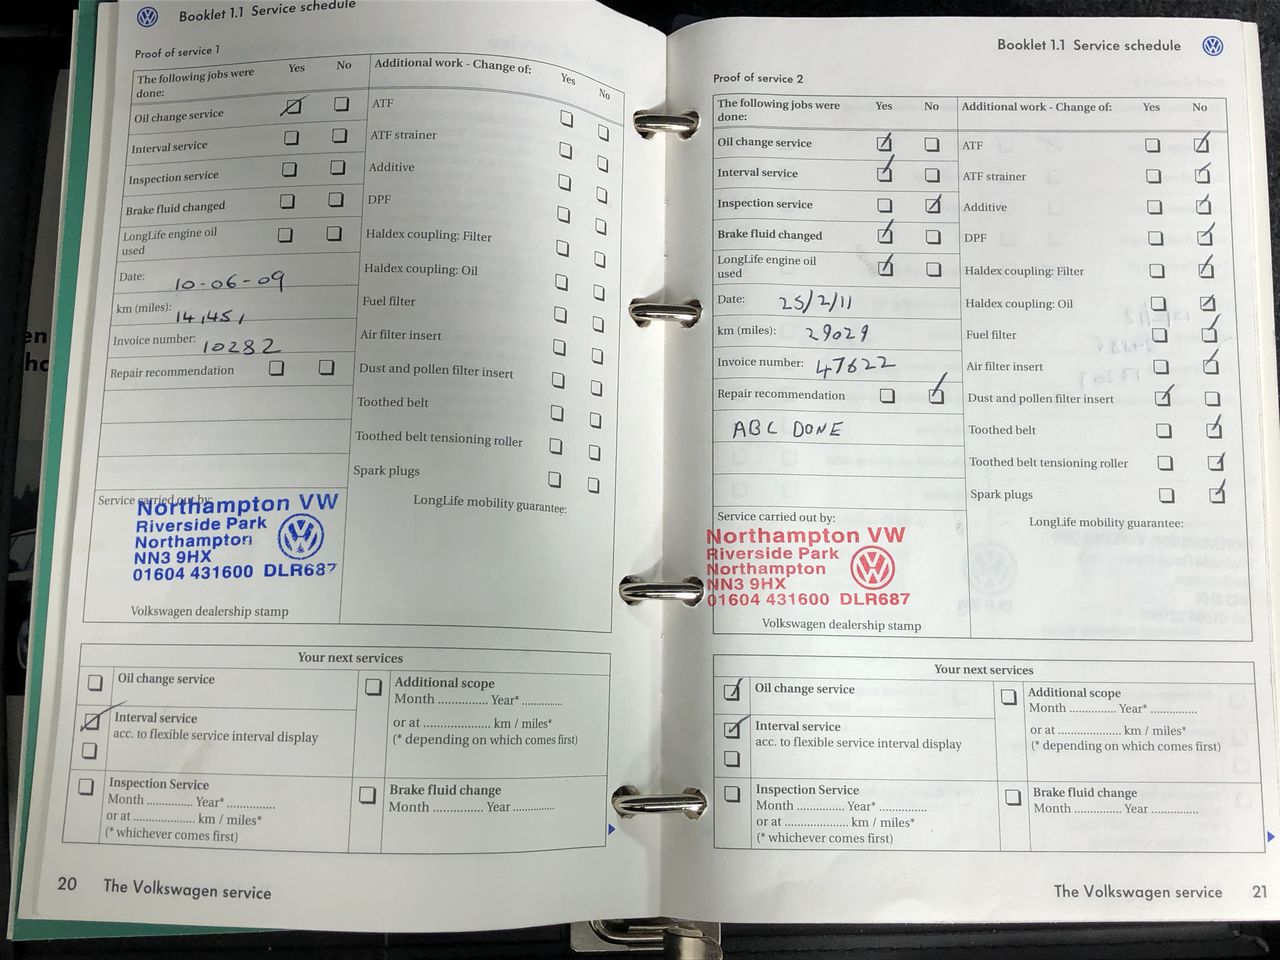 Booklet 1.1 Service schedule
Proof of service 1
The following jobs were done: Yes No
Oil change service
Interval service
Inspection service
Brake fluid changed
LongLife engine oil used
Date: 10-06-09
km (miles): 14,451
Invoice number: 10282
Repair recommendation
Additional work - Change of: Yes No
ATF
ATF strainer
Additive
DPF
Haldex coupling: Filter
Haldex coupling: Oil
Fuel filter
Air filter insert
Dust and pollen filter insert
Toothed belt
Toothed belt tensioning roller
Spark plugs
Service carried out by:
Northampton VW
Riverside Park
Northampton
NN3 9HX
01604 431600 DLR687
Volkswagen dealership stamp
LongLife mobility guarantee:
Your next services
Oil change service
Interval service
acc. to flexible service interval display
Inspection Service
Month .............. Year* ..............
or at .................... km / miles*
(* whichever comes first)
Additional scope
Month .............. Year* ..............
or at .................... km / miles*
(* depending on which comes first)
Brake fluid change
Month .............. Year ..............
20 The Volkswagen service
Booklet 1.1 Service schedule
Proof of service 2
The following jobs were done: Yes No
Oil change service
Interval service
Inspection service
Brake fluid changed
LongLife engine oil used
Date: 25/2/11
km (miles): 29029
Invoice number: 47622
Repair recommendation
ABC DONE
Additional work - Change of: Yes No
ATF
ATF strainer
Additive
DPF
Haldex coupling: Filter
Haldex coupling: Oil
Fuel filter
Air filter insert
Dust and pollen filter insert
Toothed belt
Toothed belt tensioning roller
Spark plugs
Service carried out by:
Northampton VW
Riverside Park
Northampton
NN3 9HX
01604 431600 DLR687
Volkswagen dealership stamp
LongLife mobility guarantee:
Your next services
Oil change service
Interval service
acc. to flexible service interval display
Inspection Service
Month .............. Year* ..............
or at .................... km / miles*
(* whichever comes first)
Additional scope
Month .............. Year* ..............
or at .................... km / miles*
(* depending on which comes first)
Brake fluid change
Month .............. Year ..............
The Volkswagen service 21